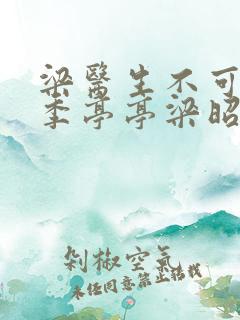 梁醫生不可
季亭亭梁昭
剁椒空氣
未经同意禁止转载